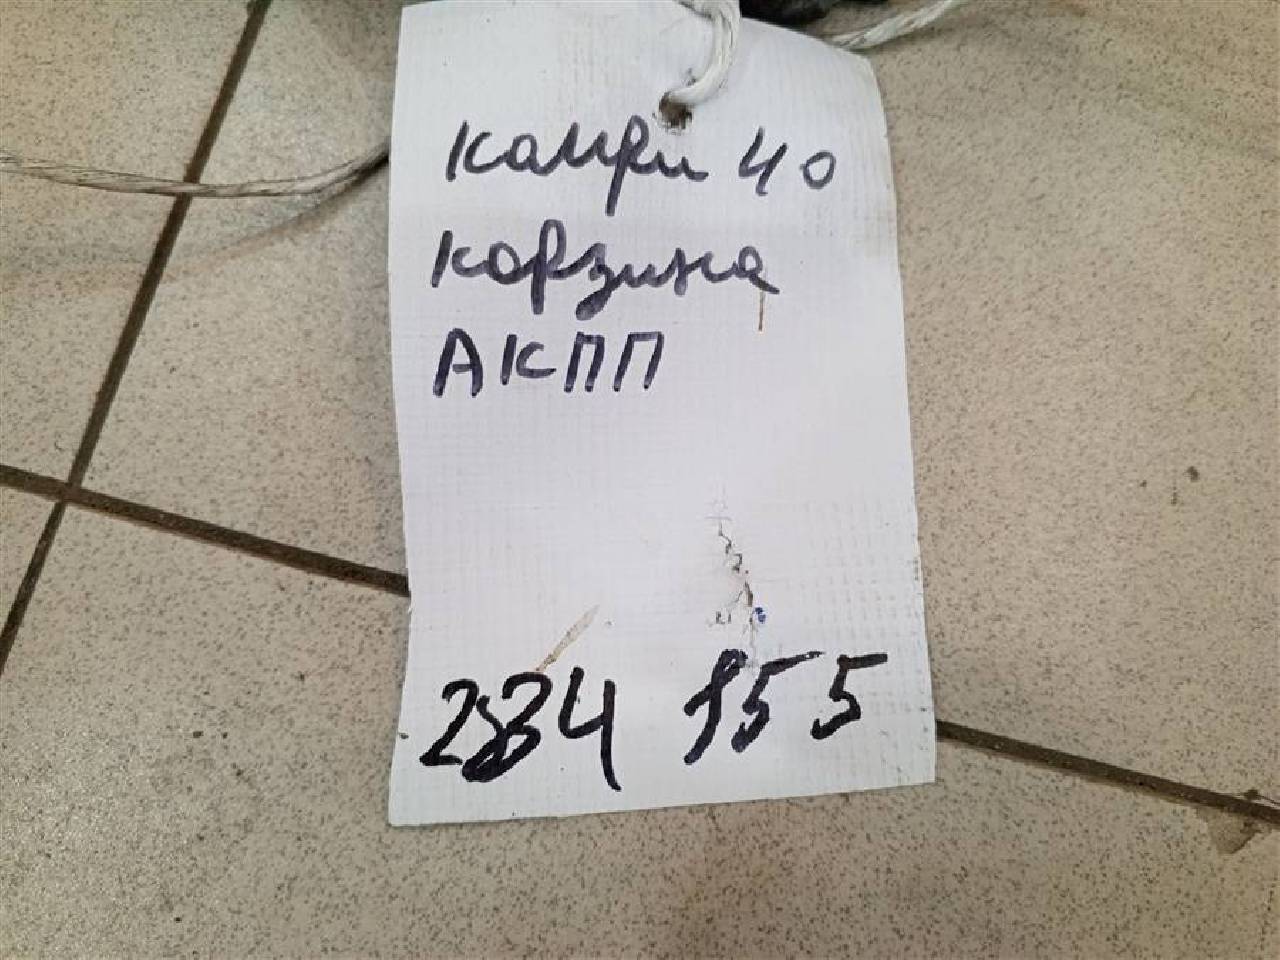 Камри 40
корзина
АКПП
234 955